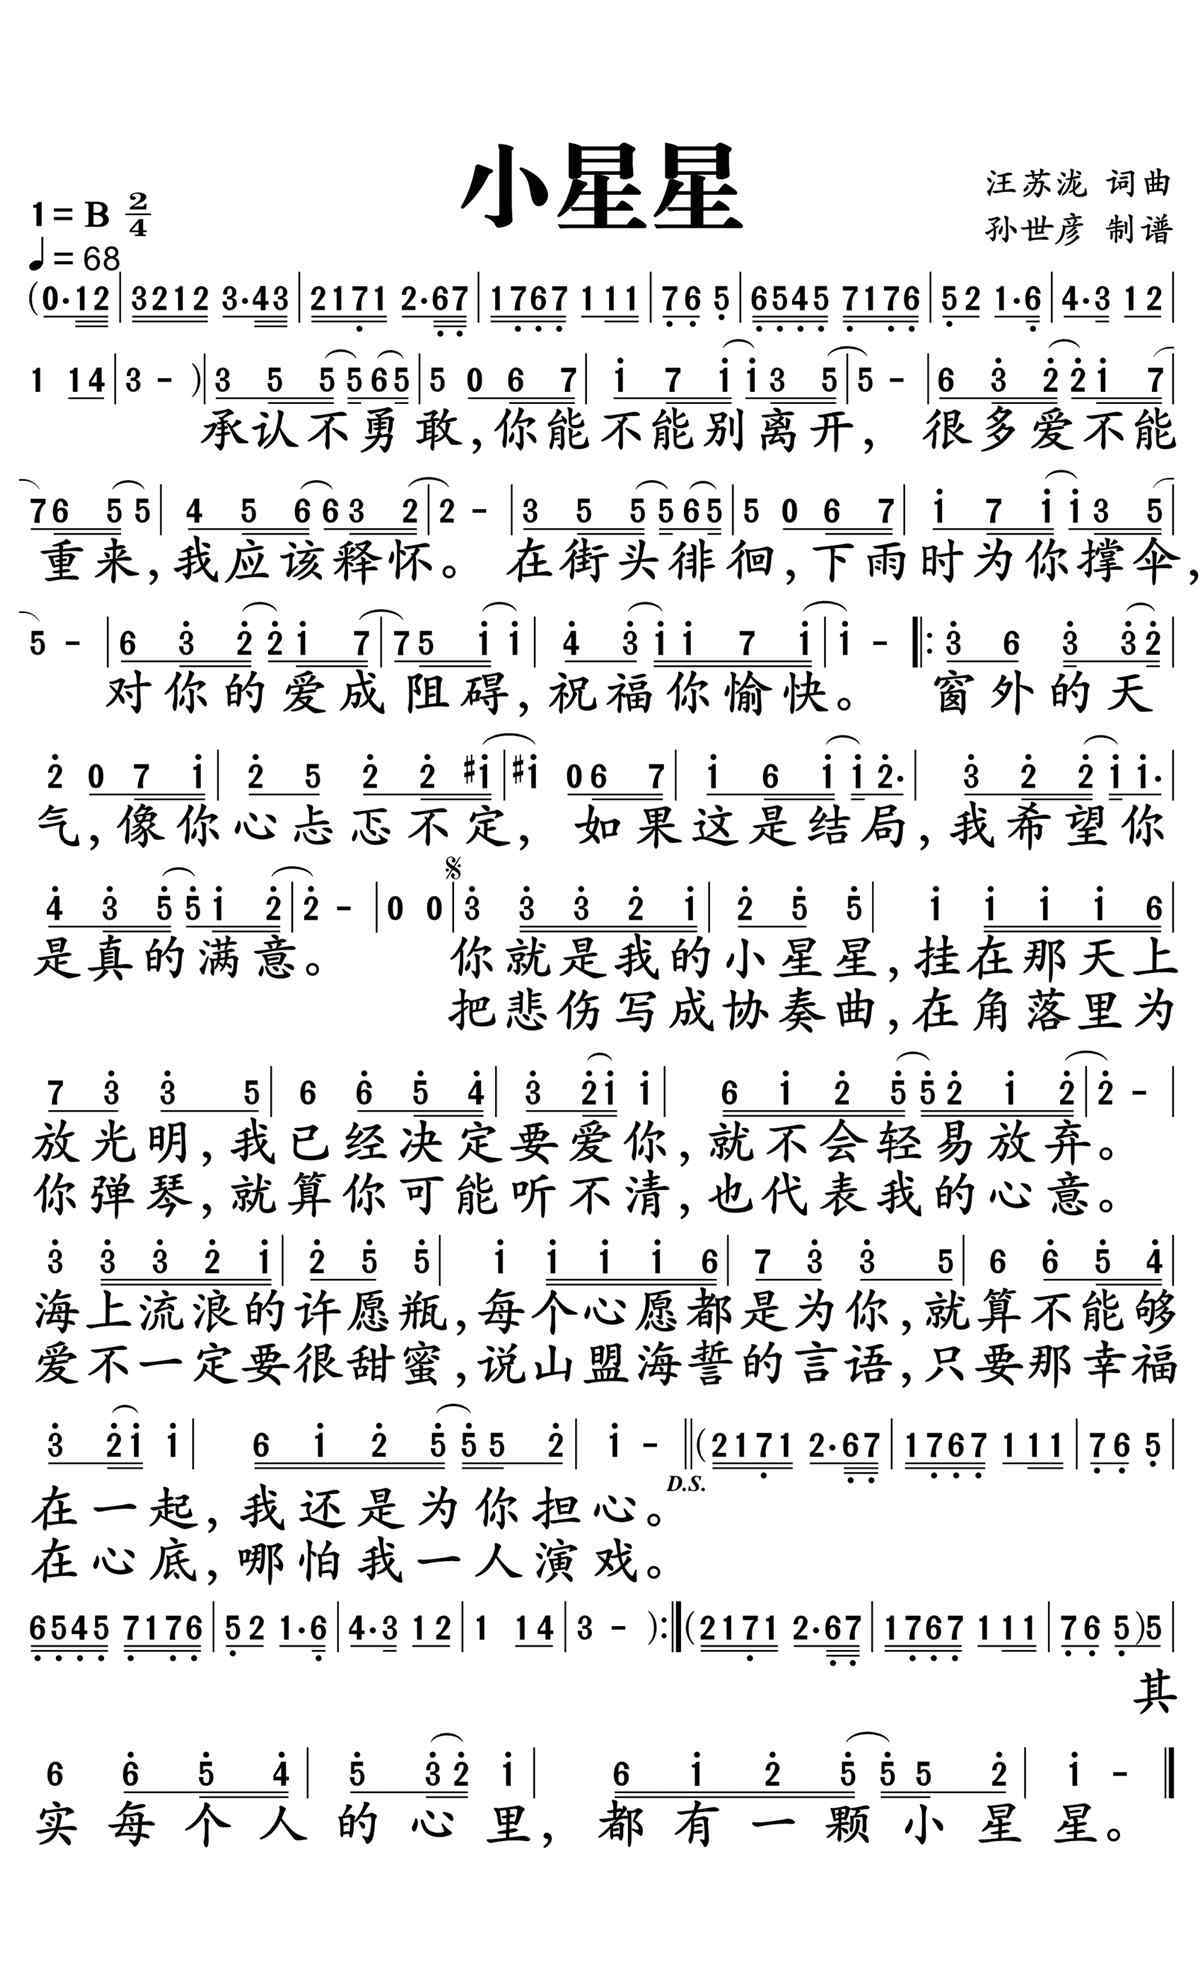 小星星
1=B 2/4
汪苏泷 词曲
♩=68
孙世彦 制谱
(0·12|3212 3·43|2171 2·67|1767 111|76 5|6545 7176|52 1·6|4·3 12|
1 14|3 -)|3 5 5 565|5 0 6 7|1 7 1 13 5|5 -|6 3 2 21 7|
承认不勇敢,你能不能别离开,很多爱不能
76 5 5|4 5 6 63 2|2 -|3 5 5 565|5 0 6 7|1 7 1 13 5|
重来,我应该释怀。在街头徘徊,下雨时为你撑伞,
5 -|6 3 2 21 7|75 1 1|4 3 1 1 7 1|1 -‖:3 6 3 3 2|
对你的爱成阻碍,祝福你愉快。窗外的天
2 0 7 1|2 5 2 2 #1|#1 06 7|1 6 1 1 2·|3 2 2 1 1·|
气,像你心忐忑不定,如果这是结局,我希望你
4 3 5 51 2|2 -|0 0|𝄋3 3 3 2 1|2 5 5|1 1 1 1 6|
是真的满意。你就是我的小星星,挂在那天上
把悲伤写成协奏曲,在角落里为
7 3 3 5|6 6 5 4|3 21 1|6 1 2 5 52 1 2|2 -|
放光明,我已经决定要爱你,就不会轻易放弃。
你弹琴,就算你可能听不清,也代表我的心意。
3 3 3 2 1|2 5 5|1 1 1 1 6|7 3 3 5|6 6 5 4|
海上流浪的许愿瓶,每个心愿都是为你,就算不能够
爱不一定要很甜蜜,说山盟海誓的言语,只要那幸福
3 21 1|6 1 2 5 55 2|1 -‖(2171 2·67|1767 111|76 5|
D.S.
在一起,我还是为你担心。
在心底,哪怕我一人演戏。
6545 7176|52 1·6|4·3 12|1 14|3 -):‖(2171 2·67|1767 111|76 5)5|
其
6 6 5 4|5 32 1|6 1 2 5 55 2|1 -‖
实每个人的心里,都有一颗小星星。